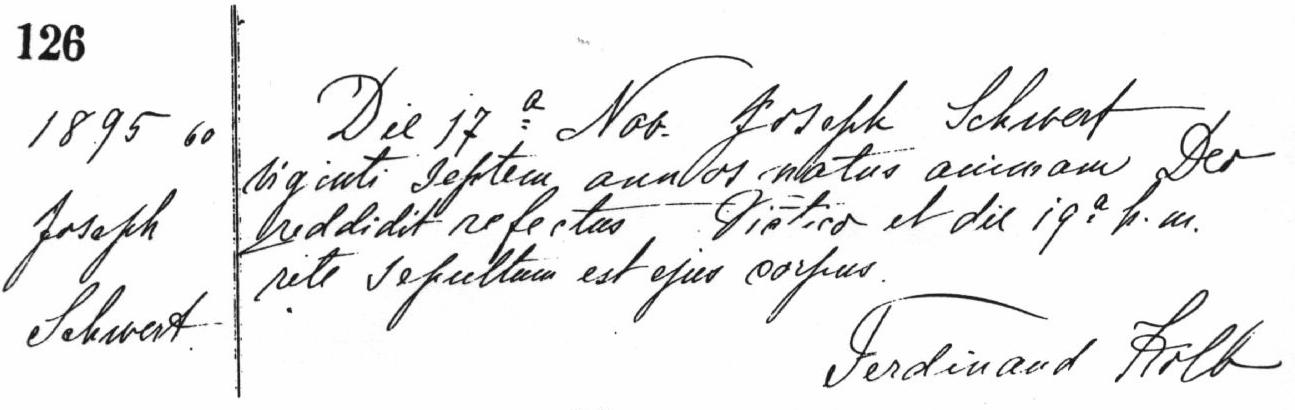 126
1895 60
Joseph
Schwert.
Die 17ª Nov. Joseph Schwert
viginti septem annos natus animam Deo
reddidit refectus Viatico et die 19ª h. m.
rite sepultum est ejus corpus.
Ferdinand Kolb